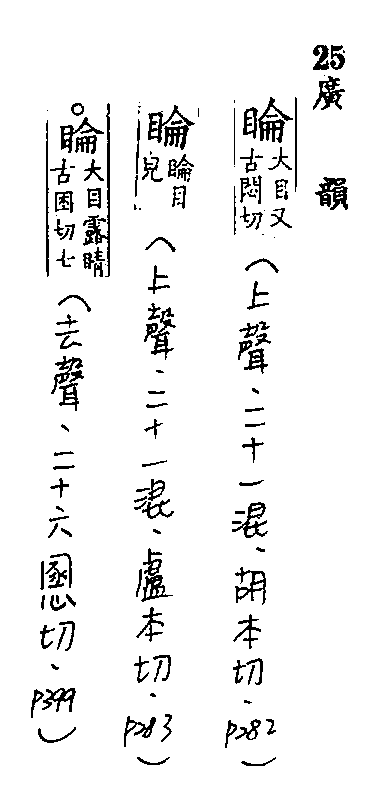 25廣韻
睔 大目又古悶切（上聲、二十一混、胡本切、P282）
睔 睔目皃（上聲、二十一混、盧本切、P283）
○睔 大目露睛古困切七（去聲、二十六慁切、P399）